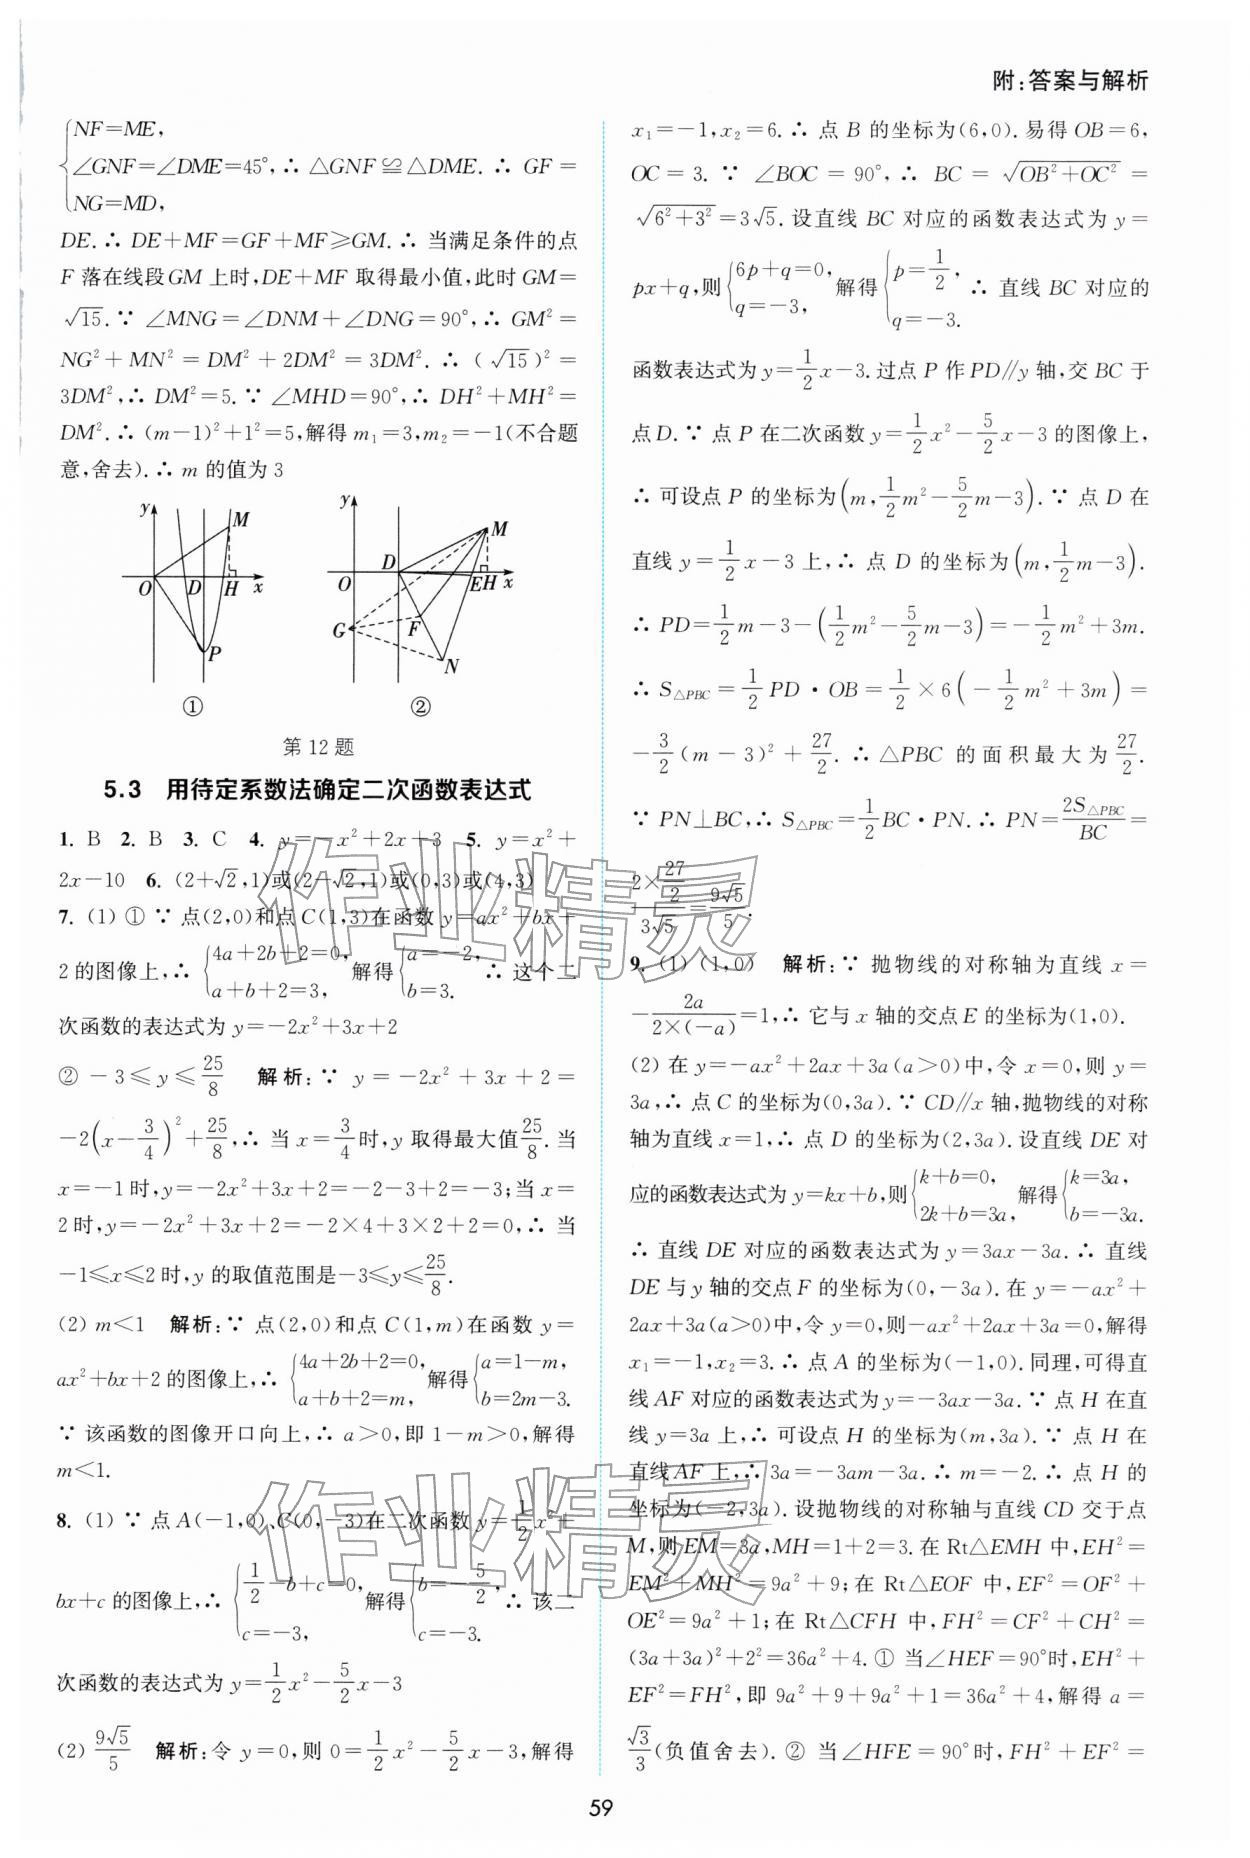 附:答案与解析
{NF=ME,
∠GNF=∠DME=45°,∴ △GNF≌△DME.∴ GF=
NG=MD,
DE.∴ DE+MF=GF+MF≥GM.∴ 当满足条件的点
F 落在线段GM 上时,DE+MF 取得最小值,此时 GM=
√15.∵ ∠MNG=∠DNM+∠DNG=90°,∴ GM²=
NG²+MN²=DM²+2DM²=3DM².∴ (√15)²=
3DM²,∴ DM²=5.∵ ∠MHD=90°,∴ DH²+MH²=
DM².∴ (m-1)²+1²=5,解得 m₁=3,m₂=-1(不合题
意,舍去).∴ m 的值为 3
y M O D H x P
y M D O E H x G F N
① ②
第 12 题
5.3 用待定系数法确定二次函数表达式
1. B 2. B 3. C 4. y=-x²+2x+3 5. y=x²+
2x-10 6. (2+√2,1)或(2-√2,1)或(0,3)或(4,3)
7. (1) ① ∵ 点(2,0)和点 C(1,3)在函数 y=ax²+bx+
2 的图像上,∴ {4a+2b+2=0, a+b+2=3, 解得{a=-2, b=3. ∴ 这个二
次函数的表达式为 y=-2x²+3x+2
② -3≤y≤25/8 解析:∵ y=-2x²+3x+2=
-2(x-3/4)²+25/8,∴ 当 x=3/4时,y 取得最大值25/8.当
x=-1时,y=-2x²+3x+2=-2-3+2=-3;当 x=
2时,y=-2x²+3x+2=-2×4+3×2+2=0,∴ 当
-1≤x≤2 时,y 的取值范围是-3≤y≤25/8.
(2) m<1 解析:∵ 点(2,0)和点 C(1,m)在函数 y=
ax²+bx+2 的图像上,∴ {4a+2b+2=0, a+b+2=m, 解得{a=1-m, b=2m-3.
∵ 该函数的图像开口向上,∴ a>0,即 1-m>0,解得
m<1.
8. (1) ∵ 点 A(-1,0)、C(0,-3)在二次函数 y=1/2x²+
bx+c 的图像上,∴ {1/2-b+c=0, c=-3, 解得{b=-5/2, c=-3. ∴ 该二
次函数的表达式为 y=1/2x²-5/2x-3
(2) 9√5/5 解析:令 y=0,则 0=1/2x²-5/2x-3,解得
x₁=-1,x₂=6.∴ 点 B 的坐标为(6,0).易得 OB=6,
OC=3.∵ ∠BOC=90°,∴ BC=√(OB²+OC²)=
√(6²+3²)=3√5.设直线 BC 对应的函数表达式为 y=
px+q,则{6p+q=0, q=-3, 解得{p=1/2, q=-3. ∴ 直线 BC 对应的
函数表达式为 y=1/2x-3.过点 P 作PD∥y 轴,交 BC 于
点D.∵ 点 P 在二次函数 y=1/2x²-5/2x-3 的图像上,
∴ 可设点 P 的坐标为(m,1/2m²-5/2m-3).∵ 点 D 在
直线 y=1/2x-3 上,∴ 点 D 的坐标为(m,1/2m-3).
∴ PD=1/2m-3-(1/2m²-5/2m-3)=-1/2m²+3m.
∴ S△PBC=1/2PD·OB=1/2×6(-1/2m²+3m)=
-3/2(m-3)²+27/2.∴ △PBC 的面积最大为27/2.
∵ PN⊥BC,∴ S△PBC=1/2BC·PN.∴ PN=2S△PBC/BC=
(2×27/2)/(3√5)=9√5/5.
9. (1) (1,0) 解析:∵ 抛物线的对称轴为直线 x=
-2a/(2×(-a))=1,∴ 它与 x 轴的交点E 的坐标为(1,0).
(2) 在 y=-ax²+2ax+3a(a>0)中,令 x=0,则 y=
3a,∴ 点 C 的坐标为(0,3a).∵ CD∥x 轴,抛物线的对称
轴为直线 x=1,∴ 点 D 的坐标为(2,3a).设直线 DE 对
应的函数表达式为 y=kx+b,则{k+b=0, 2k+b=3a, 解得{k=3a, b=-3a.
∴ 直线 DE 对应的函数表达式为 y=3ax-3a.∴ 直线
DE 与 y 轴的交点 F 的坐标为(0,-3a).在 y=-ax²+
2ax+3a(a>0)中,令 y=0,则-ax²+2ax+3a=0,解得
x₁=-1,x₂=3.∴ 点 A 的坐标为(-1,0).同理,可得直
线 AF 对应的函数表达式为 y=-3ax-3a.∵ 点 H 在直
线 y=3a 上,∴ 可设点 H 的坐标为(m,3a).∵ 点 H 在
直线AF 上,∴ 3a=-3am-3a.∴ m=-2.∴ 点 H 的
坐标为(-2,3a).设抛物线的对称轴与直线 CD 交于点
M,则 EM=3a,MH=1+2=3.在 Rt△EMH 中,EH²=
EM²+MH²=9a²+9;在 Rt△EOF 中,EF²=OF²+
OE²=9a²+1;在 Rt△CFH 中,FH²=CF²+CH²=
(3a+3a)²+2²=36a²+4.① 当∠HEF=90°时,EH²+
EF²=FH²,即 9a²+9+9a²+1=36a²+4,解得 a=
√3/3(负值舍去).② 当∠HFE=90°时,FH²+EF²=
作业精灵
作业精灵
59